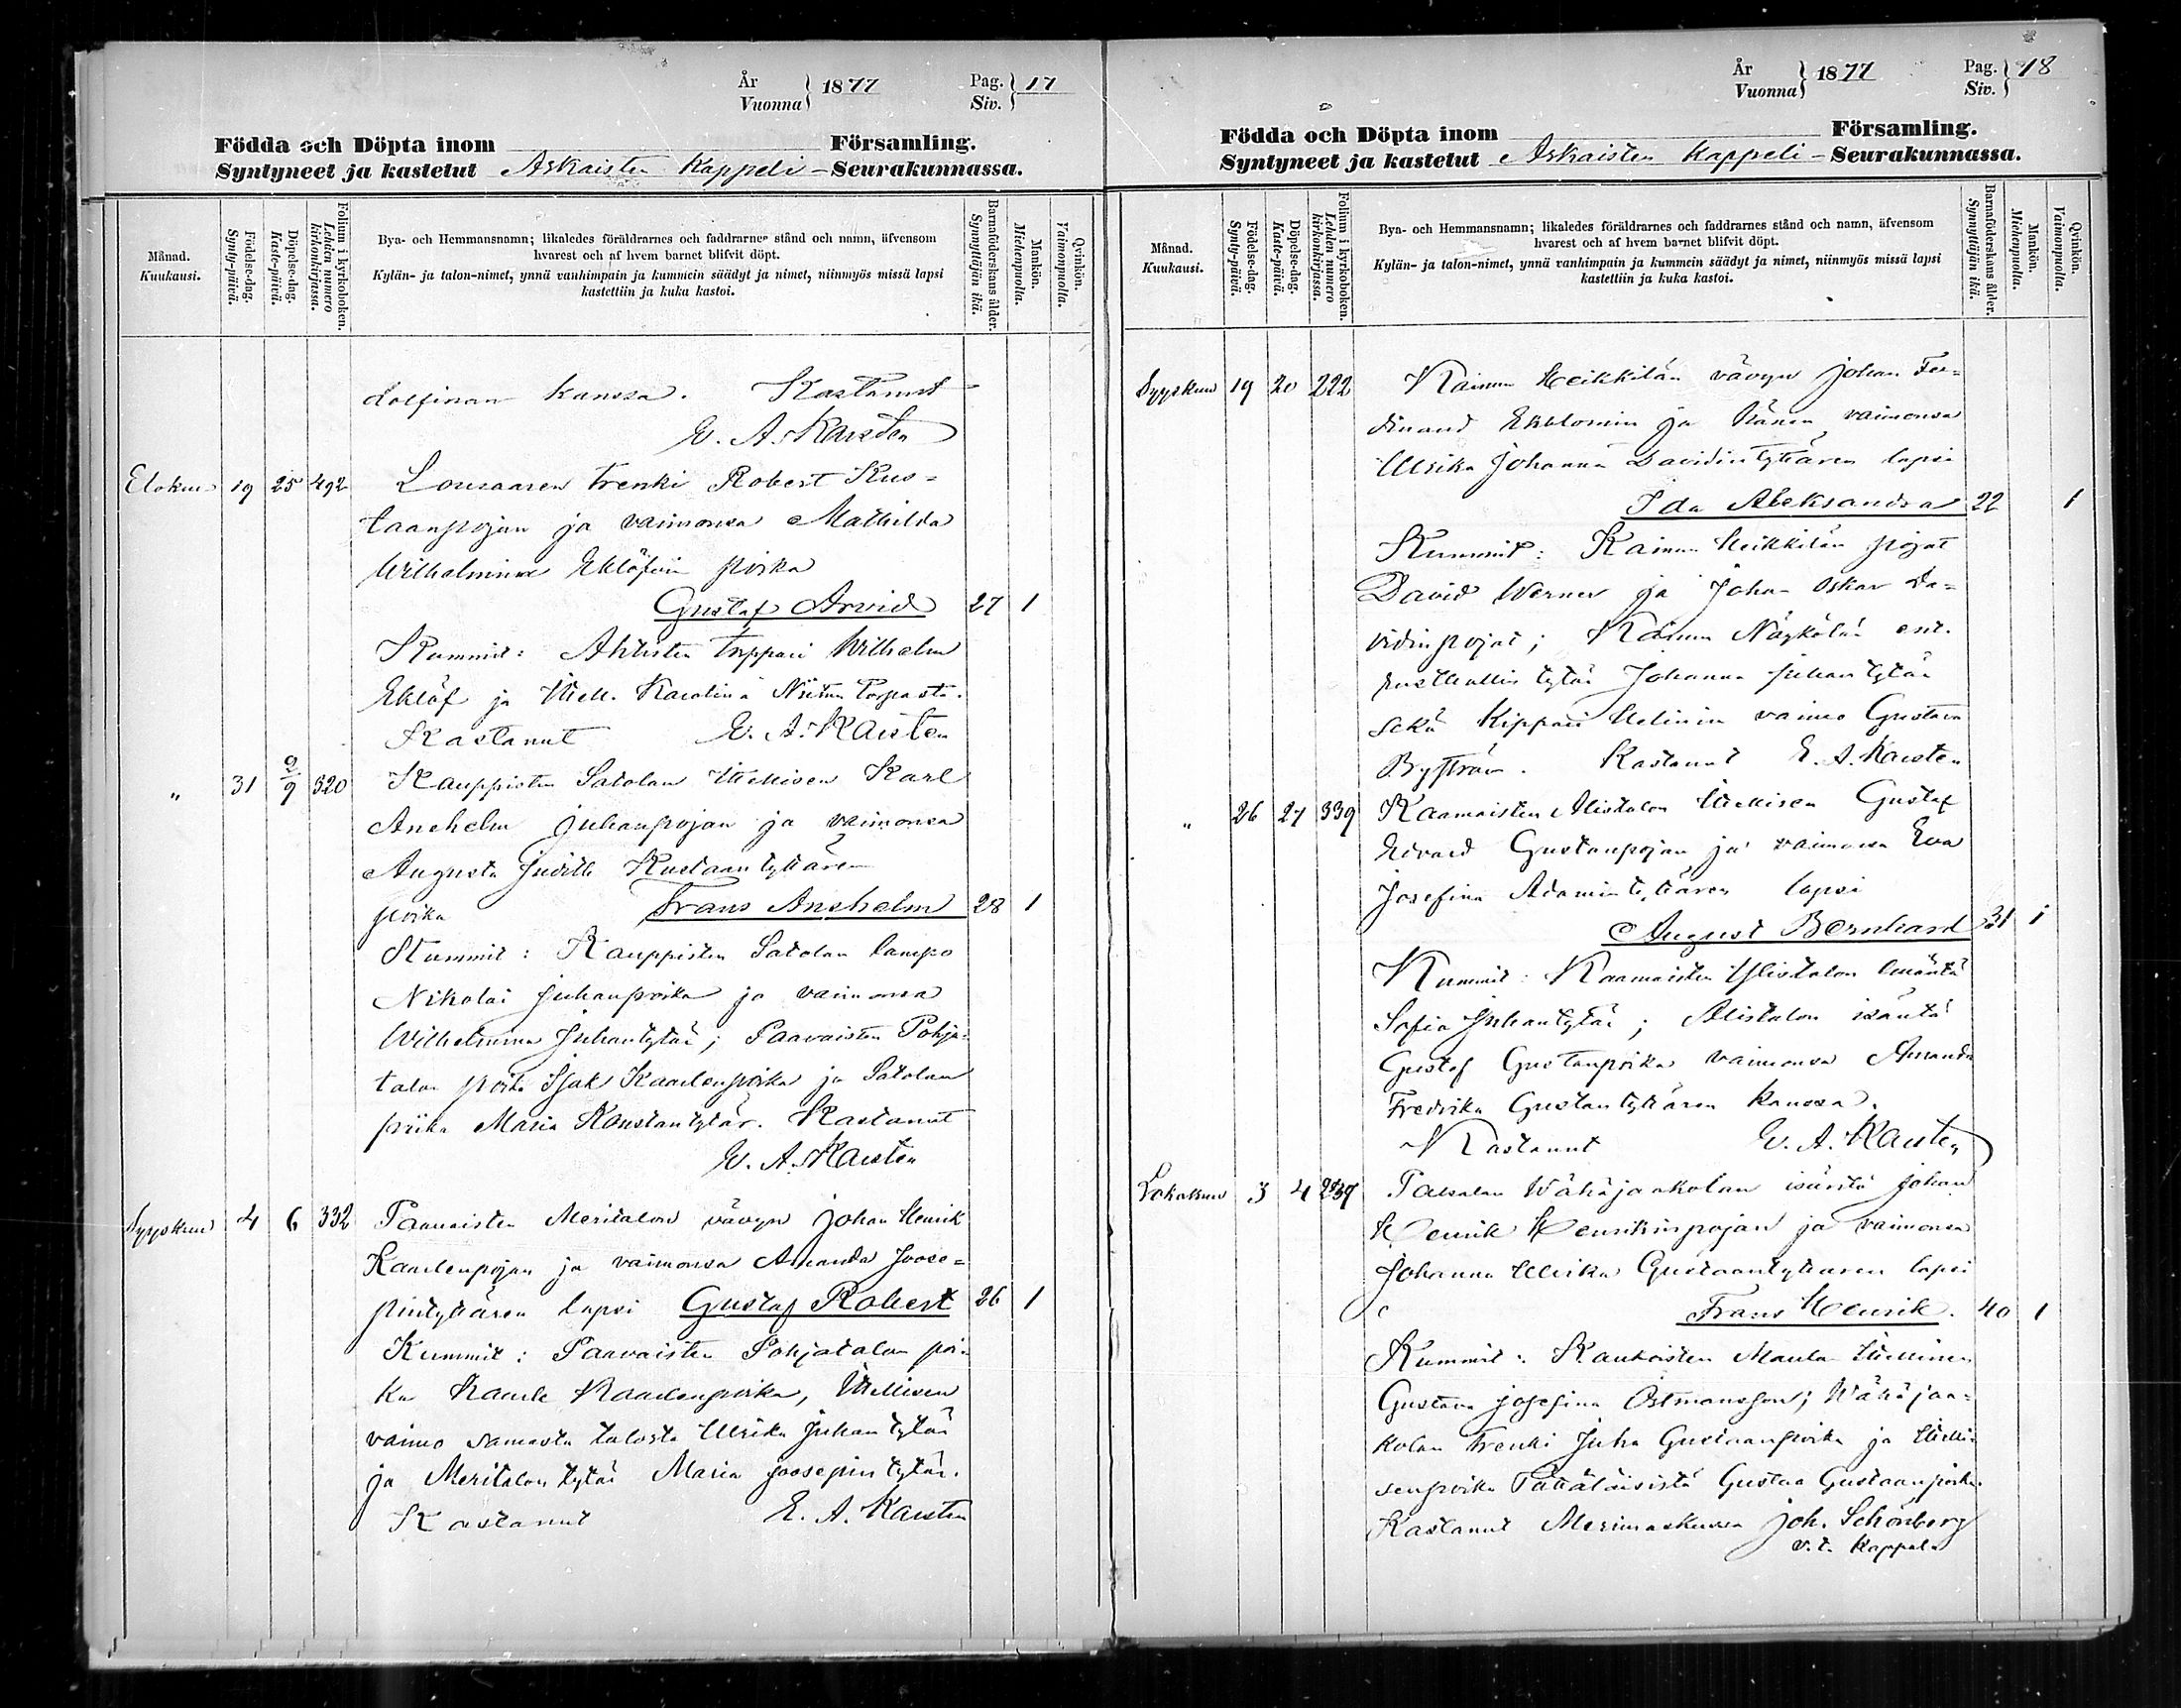 År
Vuonna } 1877
Pag.
Siv. } 17
Födda och Döpta inom Församling.
Syntyneet ja kastetut Askaisten Kappeli - Seurakunnassa.
Månad.
Kuukausi.
Födelse-dag.
Synty-päivä.
Döpelse-dag.
Kaste-päivä.
Folium i kyrkoboken.
Lehden numero kirkonkirjassa.
Bya- och Hemmansnamn; likaledes föräldrarnes och faddrarnes stånd och namn, äfvensom
hvarest och af hvem barnet blifvit döpt.
Kylän- ja talon-nimet, ynnä vanhimpain ja kummein säädyt ja nimet, niinmyös missä lapsi
kastettiin ja kuka kastoi.
Barnaföderskans ålder.
Synnyttäjän ikä.
Mankön.
Miehenpuolia.
Qvinkön.
Vaimonpuolia.
dolfinan kanssa. Kastanut
E. A. Karsten
Elokuu 19 25 492 Lousaaren trenki Robert Kus=
taanpojan ja vaimonsa Mathilda
Wilhelmina Eklöfin poika
Gustaf Arvid 27 1
Kummit: Ahtisten torppari Wilhelm
Eklöf ja Karolina Niitun torpasta.
Kastanut E. A. Karsten
" 31 2/9 320 Kauppisten Satolan itsellisen Karl
Anshelm Juhanpojan ja vaimonsa
Augusta Judith Kustaantyttären
poika Frans Anshelm 28 1
Kummit: Kauppisten Satolan lampo
Nikolai Juhanpoika ja vaimonsa
Wilhelmina Juhantytär; Paavaisten Pohja=
talon poika Isak Kaarlenpoika ja Satolan
piika Maria Konstantytär. Kastanut
E. A. Karsten
Syyskuu 4 6 332 Paavaisten Meritalon vävyn Johan Henrik
Kaarlenpojan ja vaimonsa Amanda Joose=
pintyttären lapsi Gustaf Robert 26 1
Kummit: Paavaisten Pohjatalon poi=
ka Kaarle Kaarlenpoika, itsellisen
vaimo samasta talosta Ulrika Juhantytär
ja Meritalon tytär Maria Joosepintytär.
Kastanut E. A. Karsten
År
Vuonna } 1877
Pag.
Siv. } 18
Födda och Döpta inom Församling.
Syntyneet ja kastetut Askaisten Kappeli - Seurakunnassa.
Månad.
Kuukausi.
Födelse-dag.
Synty-päivä.
Döpelse-dag.
Kaste-päivä.
Folium i kyrkoboken.
Lehden numero kirkonkirjassa.
Bya- och Hemmansnamn; likaledes föräldrarnes och faddrarnes stånd och namn, äfvensom
hvarest och af hvem barnet blifvit döpt.
Kylän- ja talon-nimet, ynnä vanhimpain ja kummein säädyt ja nimet, niinmyös missä lapsi
kastettiin ja kuka kastoi.
Barnaföderskans ålder.
Synnyttäjän ikä.
Mankön.
Miehenpuolia.
Qvinkön.
Vaimonpuolia.
Syyskuu 19 20 222 Kaimun Heikkilän vävyn Johan Fer=
dinand Ekblomin ja hänen vaimonsa
Ulrika Johanna Davidintyttären lapsi
Ida Aleksandra 22 1
Kummit: Kaimun Heikkilän pojat
David Werner ja Johan Oskar Da=
vidinpojat; Kaimun Näykölän ent.
rusthollin tytär Johanna Juhantytär
sekä Kippari Helinin vaimo Gustava
Byström. Kastanut E. A. Karsten
" 26 27 339 Kaamaisten Alistalon itsellisen Gustaf
Edvard Gustanpojan ja vaimonsa Eva
Josefina Adamintyttären lapsi
August Bernhard 31 1
Kummit: Kaamaisten Ylistalon emäntä
Sofia Juhantytär; Alistalon isäntä
Gustaf Gustanpoika vaimonsa Amanda
Fredrika Gustantyttären kanssa.
Kastanut E. A. Karsten
Lokakuu 3 4 237 Wähäjaakolan isäntä Johan
Henrik Henrikinpojan ja vaimonsa
Johanna Ulrika Gustaantyttären lapsi
Frans Henrik. 40 1
Kummit: Kaukoisten itsellinen
Gustava Josefina Östmansson; Wähäjaa=
kolan trenki Juha Gustaanpoika ja itselli=
senpoika Gustaa Gustaanpoika.
Kastanut Merimaskussa Joh. Schönberg
v. t. Kappal.